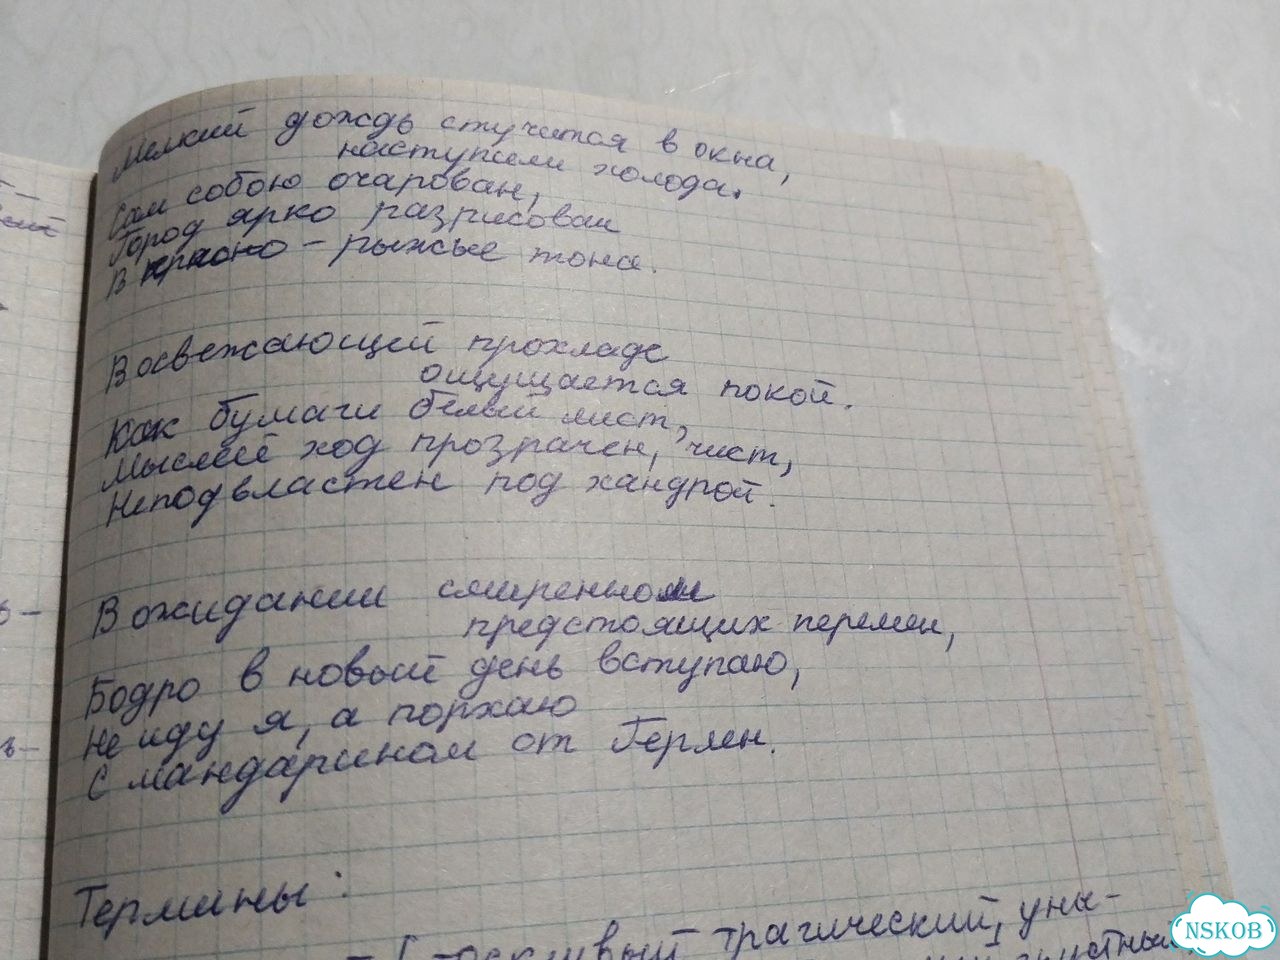 Мелкий дождь стучится в окна,
наступили холода.
Сам собою очарован,
Город ярко разрисован
В красно-рыжые тона.
В освежающей прохладе
ощущается покой.
Как бумаги белый лист,
Мыслей ход прозрачен, чист,
Неподвластен под хандрой.
В ожидании смиренном
предстоящих перемен,
Бодро в новый день вступаю,
Не иду я, а порхаю
С мандарином от Герлен.
Термины:
трагический, уны-
NSKOB